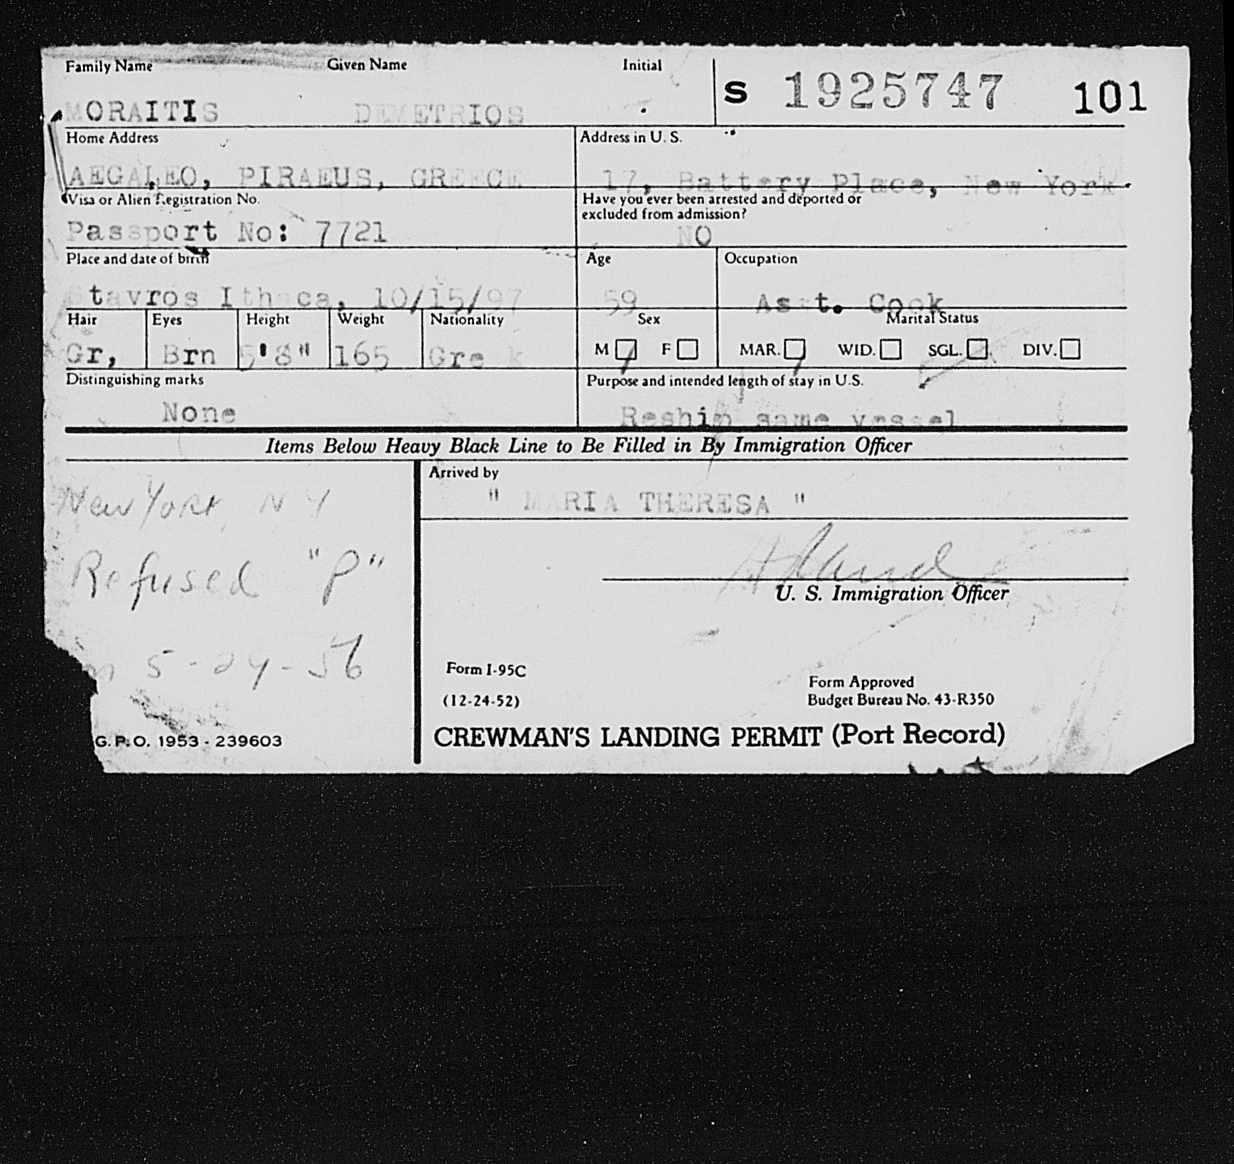 Family Name Given Name Initial
S 1925747 101
MORAITIS DEMETRIOS
Home Address Address in U. S.
AEGALEO, PIRAEUS, GREECE 17, Battery Place, New York.
Visa or Alien Registration No. Have you ever been arrested and deported or
excluded from admission?
Passport No: 7721 NO
Place and date of birth Age Occupation
Stavros Ithaca, 10/15/97 59 Asst. Cook
Hair Eyes Height Weight Nationality Sex Marital Status
Gr, Brn 5'8" 165 Greek M F MAR. WID. SGL. DIV.
Distinguishing marks Purpose and intended length of stay in U.S.
None Reship same vessel
Items Below Heavy Black Line to Be Filled in By Immigration Officer
Arrived by
" MARIA THERESA "
New York, NY
Refused "P"
5-24-56
U. S. Immigration Officer
Form I-95C
(12-24-52)
Form Approved
Budget Bureau No. 43-R350
G.P.O. 1953-239603
CREWMAN'S LANDING PERMIT (Port Record)